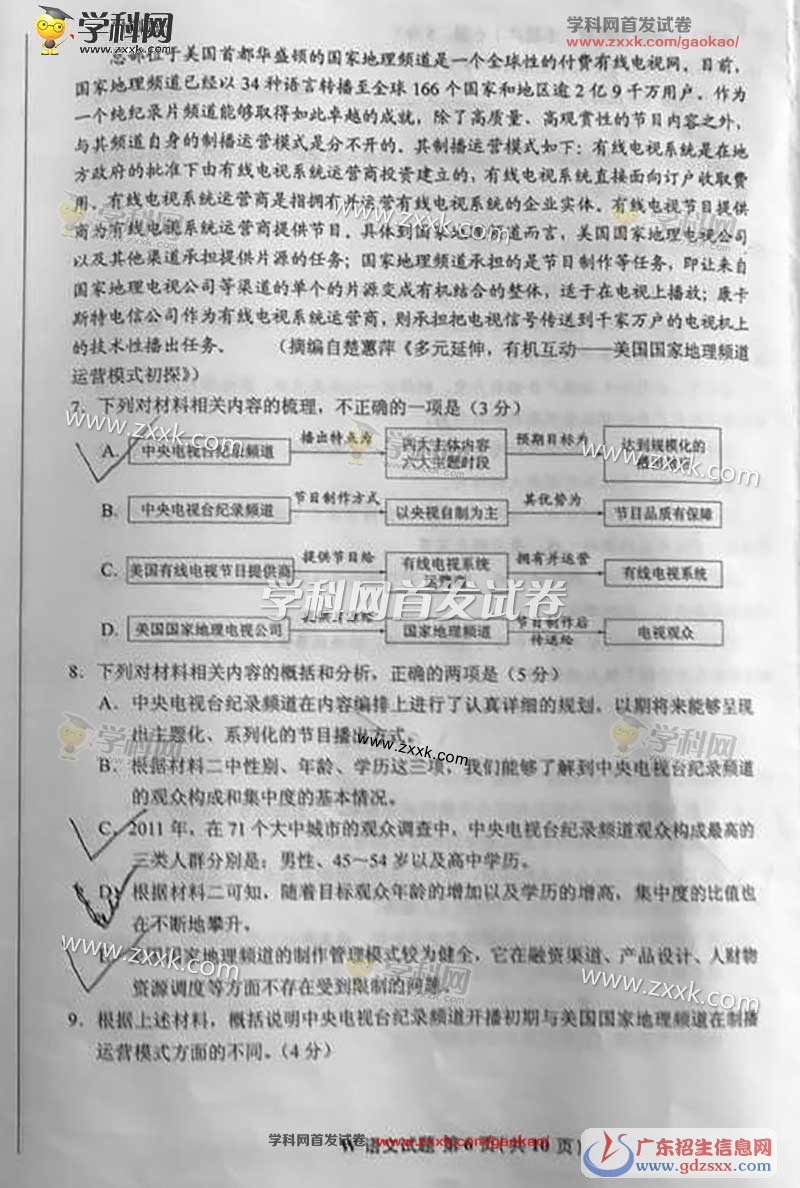 学科网
学科网首发试卷
www.zxxk.com/gaokao/
总部位于美国首都华盛顿的国家地理频道是一个全球性的付费有线电视网。目前，
国家地理频道已经以 34 种语言转播至全球 166 个国家和地区逾 2 亿 9 千万用户。作为
一个纯纪录片频道能够取得如此卓越的成就，除了高质量、高观赏性的节目内容之外，
与其频道自身的制播运营模式是分不开的。其制播运营模式如下：有线电视系统是在地
方政府的批准下由有线电视系统运营商投资建立的，有线电视系统直接面向订户收取费
用。有线电视系统运营商是指拥有并运营有线电视系统的企业实体。有线电视节目提供
商为有线电视系统运营商提供节目。具体到国家地理频道而言，美国国家地理电视公司
以及其他渠道承担提供片源的任务；国家地理频道承担的是节目制作等任务，即让来自
国家地理电视公司等渠道的单个的片源变成有机结合的整体，适于在电视上播放；康卡
斯特电信公司作为有线电视系统运营商，则承担把电视信号传送到千家万户的电视机上
的技术性播出任务。 （摘编自楚蕙萍《多元延伸，有机互动——美国国家地理频道
运营模式初探》）
7．下列对材料相关内容的梳理，不正确的一项是（3 分）
A. 中央电视台纪录频道 播出特点为 四大主体内容 六大主题时段 预期目标为 达到规模化的
B. 中央电视台纪录频道 节目制作方式 以央视自制为主 其优势为 节目品质有保障
C. 美国有线电视节目提供商 提供节目给 有线电视系统 运营商 拥有并运营 有线电视系统
学科网首发试卷
D. 美国国家地理电视公司 国家地理频道 节目制作后 传送给 电视观众
8．下列对材料相关内容的概括和分析，正确的两项是（5 分）
A．中央电视台纪录频道在内容编排上进行了认真详细的规划，以期将来能够呈现
出主题化、系列化的节目播出方式。
www.zxxk.com
B．根据材料二中性别、年龄、学历这三项，我们能够了解到中央电视台纪录频道
的观众构成和集中度的基本情况。
C．2011 年，在 71 个大中城市的观众调查中，中央电视台纪录频道观众构成最高的
三类人群分别是：男性、45～54 岁以及高中学历。
D．根据材料二可知，随着目标观众年龄的增加以及学历的增高，集中度的比值也
在不断地攀升。
国国家地理频道的制作管理模式较为健全，它在融资渠道、产品设计、人财物
资源调度等方面不存在受到限制的问题。
9．根据上述材料，概括说明中央电视台纪录频道开播初期与美国国家地理频道在制播
运营模式方面的不同。（4 分）
学科网首发试卷 www.zxxk.com/gaokao/
W·语文试题 第 6 页(共 10 页)
广东招生信息网
www.gdzsxx.com